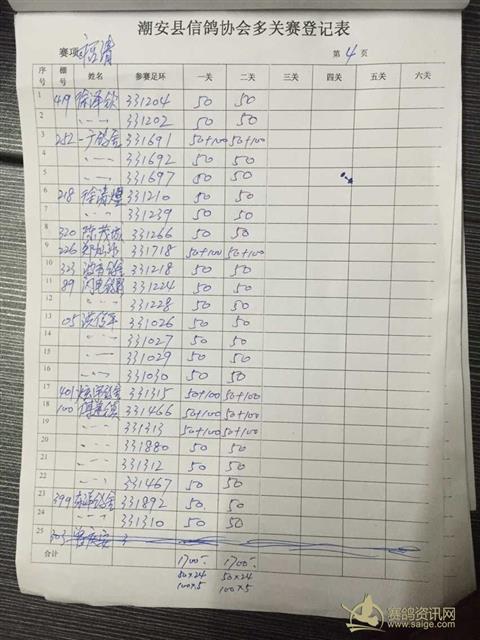 潮安县信鸽协会多关赛登记表
赛项: 福清 第 4 页
序号 棚号 姓名 参赛足环 一关 二关 三关 四关 五关 六关
1 419 徐泽钦 331204 50 50
2 331202 50 50
3 252 331691 50+100 50+100
4 331692 50 50
5 331697 50 50
6 218 徐 331210 50 50
7 331239 50 50
8 320 陈茂 331266 50 50
9 226 331718 50+100 50+100
10 323 331218 50 50
11 89 闪电鸽舍 331224 50 50
12 331228 50 50
13 05 331026 50 50
14 331027 50 50
15 331029 50 50
16 331030 50 50
17 401 331315 50+100 50+100
18 100 331466 50+100 50+100
19 331313 50+100 50+100
20 331880 50 50
21 331312 50 50
22 331467 50 50
23 399 鸽舍 331892 50 50
24 331310 50 50
25 303
合计 1700- 1700-
50×24 50×24
100×5 100×5
赛鸽资讯网
www.saige.com